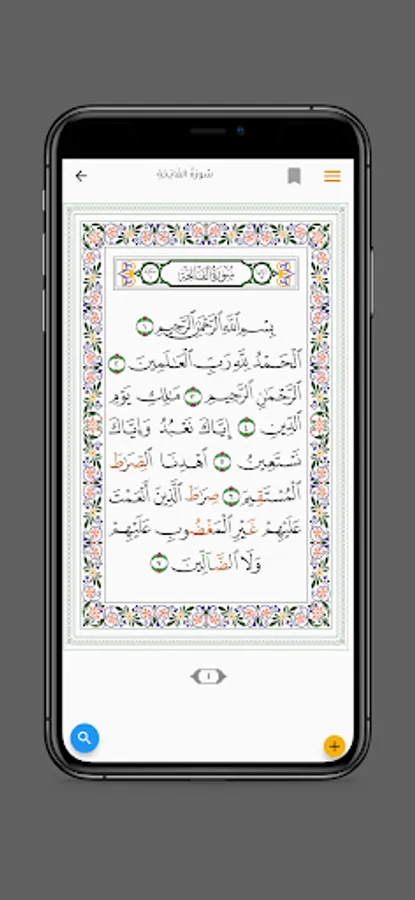 سُورَةُ الفَاتِحَةِ
سُورَةُ الفَاتِحَةِ
بِسْمِ ٱللَّهِ ٱلرَّحْمَٰنِ ٱلرَّحِيمِ ١
ٱلْحَمْدُ لِلَّهِ رَبِّ ٱلْعَٰلَمِينَ ٢
ٱلرَّحْمَٰنِ ٱلرَّحِيمِ ٣ مَٰلِكِ يَوْمِ
ٱلدِّينِ ٤ إِيَّاكَ نَعْبُدُ وَإِيَّاكَ
نَسْتَعِينُ ٥ ٱهْدِنَا ٱلصِّرَٰطَ
ٱلْمُسْتَقِيمَ ٦ صِرَٰطَ ٱلَّذِينَ أَنْعَمْتَ
عَلَيْهِمْ غَيْرِ ٱلْمَغْضُوبِ عَلَيْهِمْ
وَلَا ٱلضَّآلِّينَ ٧
١